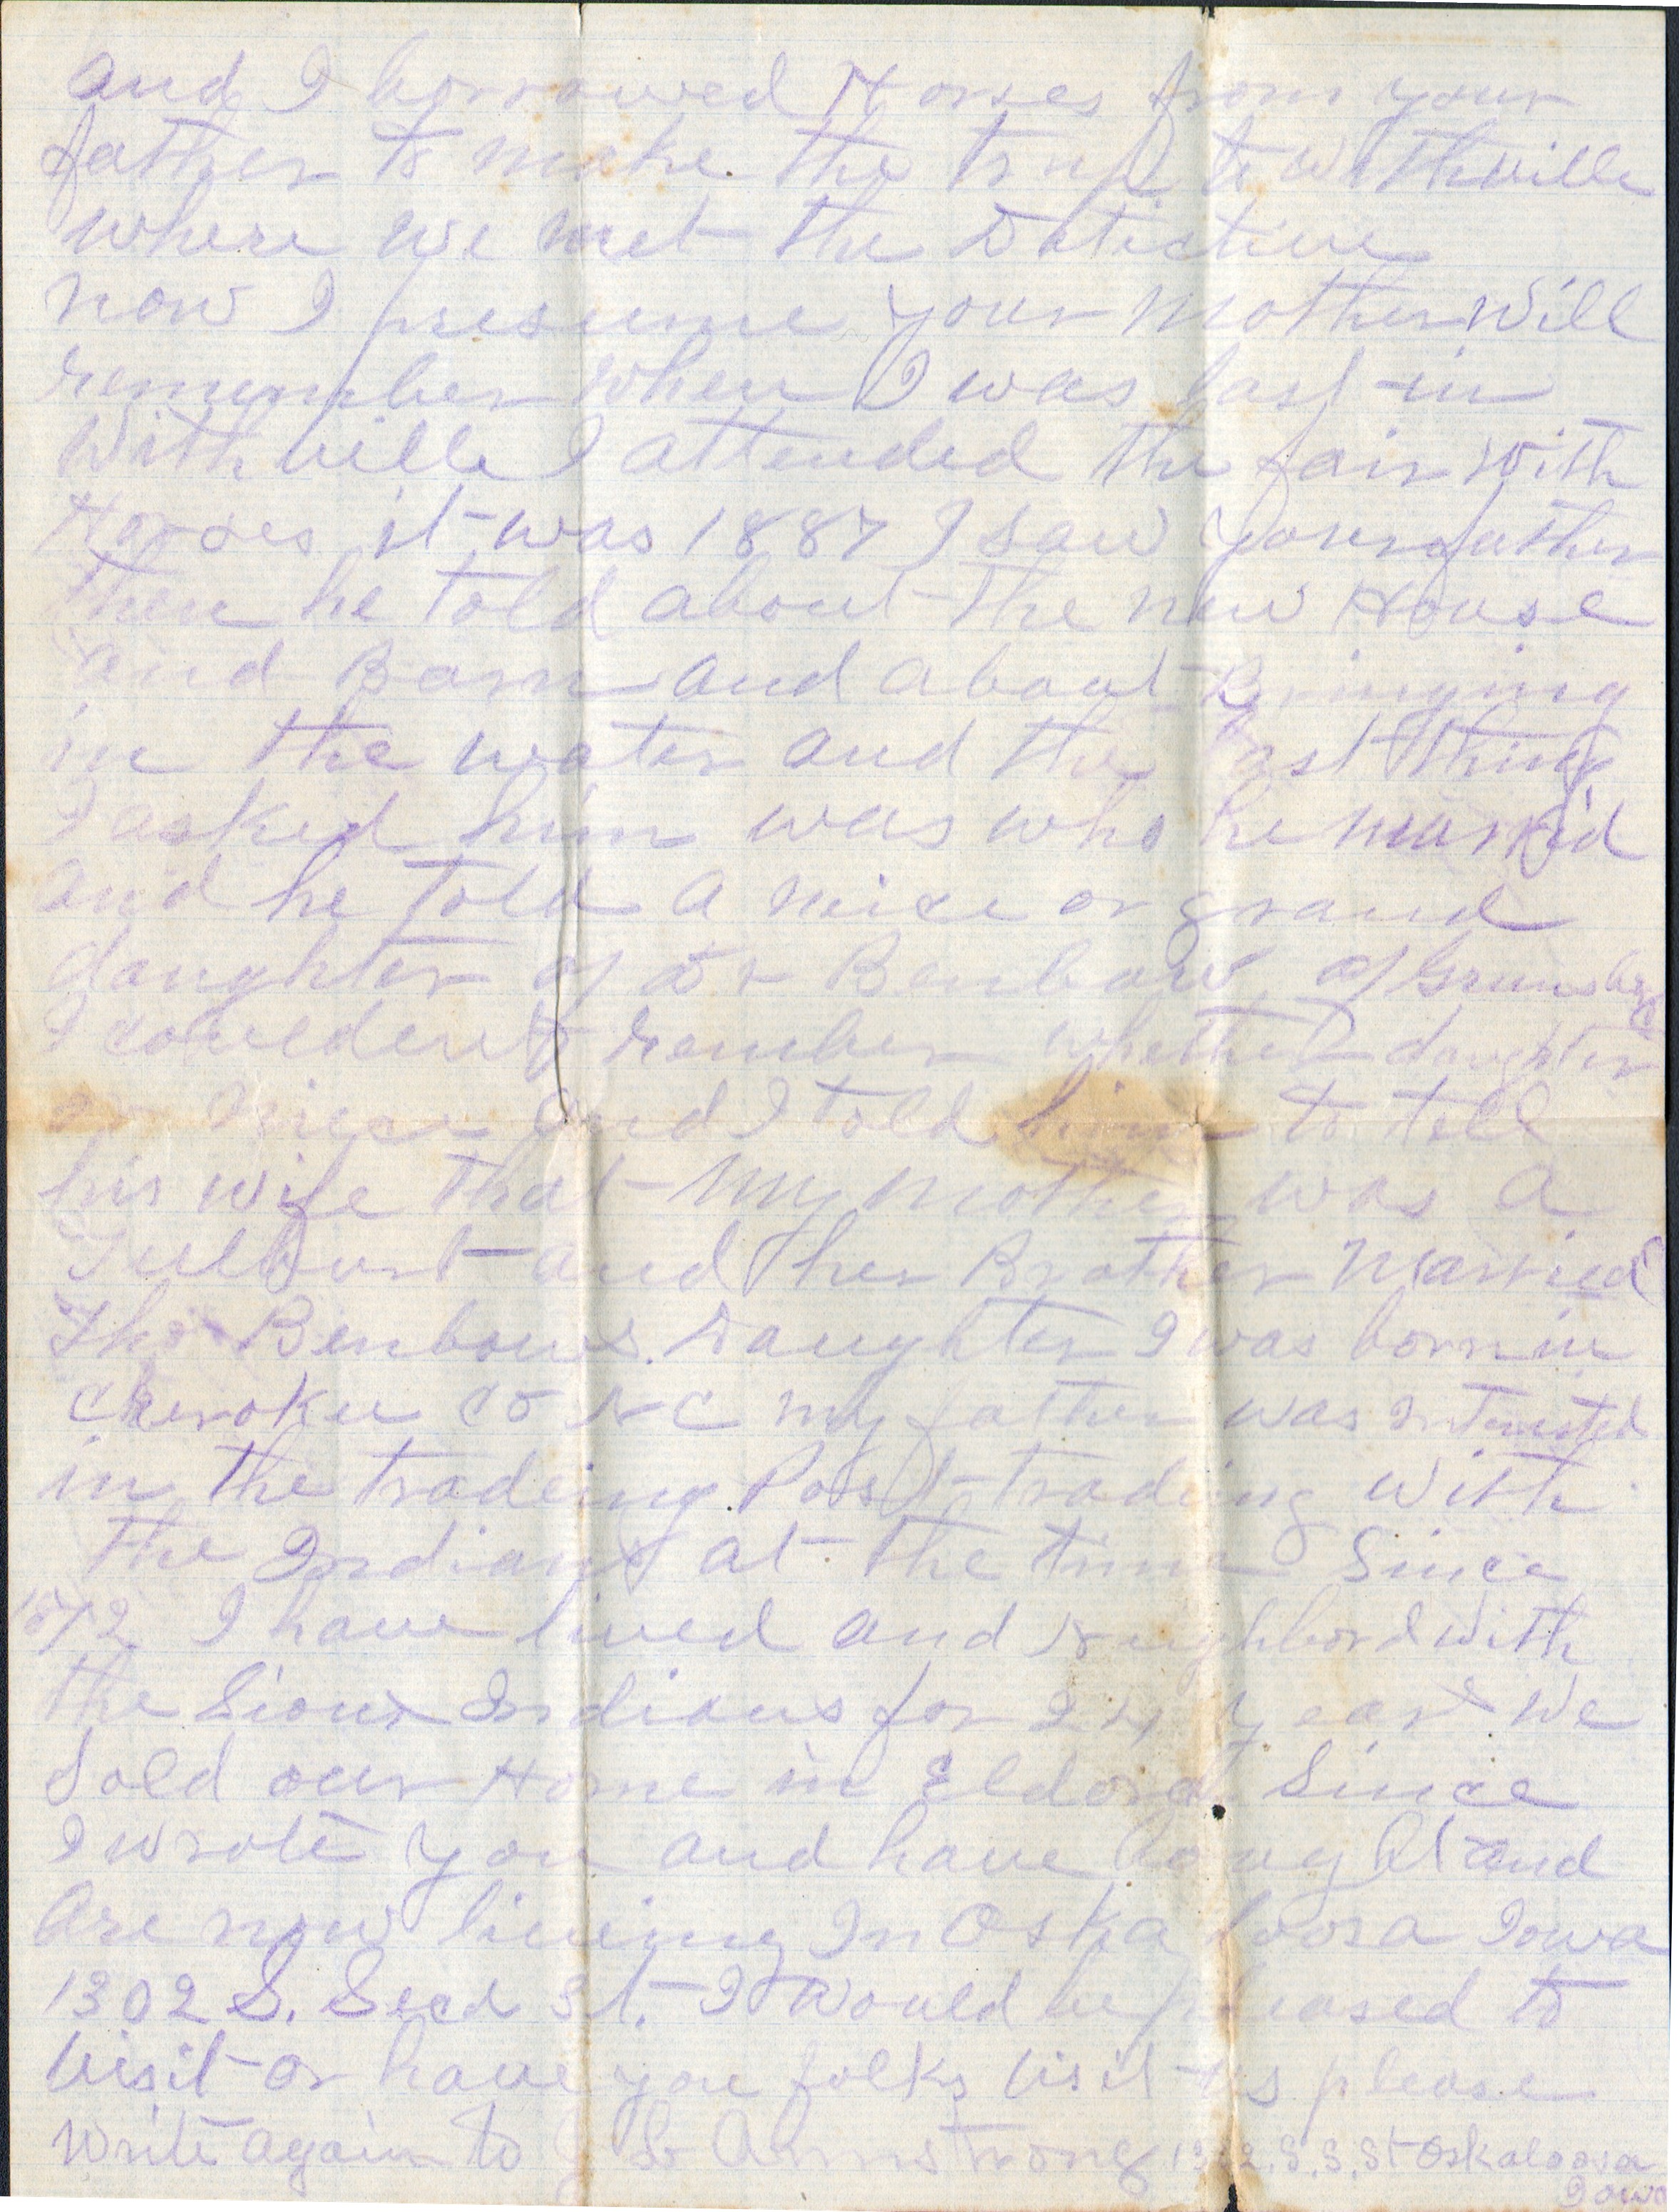 and I borrowed Horses from your
father to make the trip to Withville
where we met the Detictive
now I presume your Mother will
remember when I was last in
Withville I attended the fair with
Horses it was 1887 I saw your father
then he told about the new House
and Barn and about Bringing
in the water and the last thing
I asked him was who he married
and he told a niece or grand
daughter of Dr Benbow of
I couldent remember whether daughter
or niece and I told him to tell
his wife that my mother was a
and her Brother Married
Tho Benbows Daughter I was born in
Cherokee Co N C my father was Interested
in the tradeing Post trading with
the Indians at the time Since
1872 I have lived and Neighbord with
the Sioux Indians for 24 years We
Sold our Home in Eldora Since
I wrote you and have bought and
Are now liveing In Oskaloosa Iowa
1302 S. Secd St. I would be pleased to
visit or have you folks visit us please
write again to Armstrong 1302. S. S. St Oskaloosa
Iowa